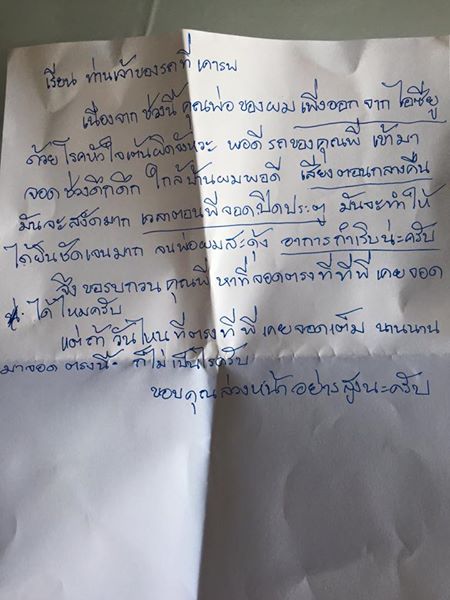 เรียน ท่านเจ้าของรถที่เคารพ
เนื่องจาก ช่วงนี้ คุณพ่อ ของผม เพิ่งออก จาก ไอซียู
ด้วยโรคหัวใจเต้นผิดจังหวะ พอดี รถของคุณพี่ เข้ามา
จอด ช่วงดึกดึก ใกล้บ้านผมพอดี เสียงตอนกลางคืน
มันจะสงัดมาก เวลาตอนพี่จอดปิดประตู มันจะทำให้
ได้ยินชัดเจนมาก จนพ่อผมสะดุ้ง อาการกำเริบน่ะครับ
จึง ขอรบกวน คุณพี่ หาที่จอดตรงที่ที่พี่ เคยจอด
ได้ไหมครับ
แต่ถ้า วันไหน ที่ตรงที่ พี่ เคยจอดเต็ม นานนาน
มาจอด ตรงนี้ะ ก็ไม่เป็นไรครับ
ขอบคุณล่วงหน้าอย่างสูงนะครับ